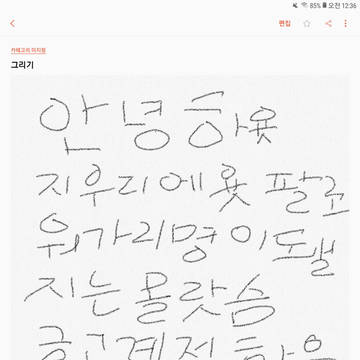 85% 오전 12:36
편집
카테고리 미지정
그리기
안녕하욨
지우리에욨 팔로
워가리명이도뷀
지는몰랏슴